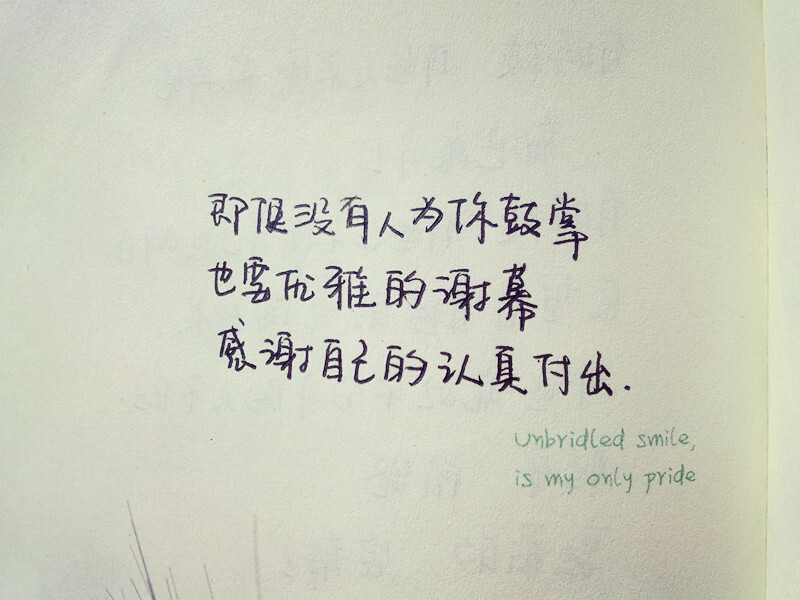 即便没有人为你鼓掌
也要优雅的谢幕
感谢自己的认真付出.
Unbridled smile,
is my only pride